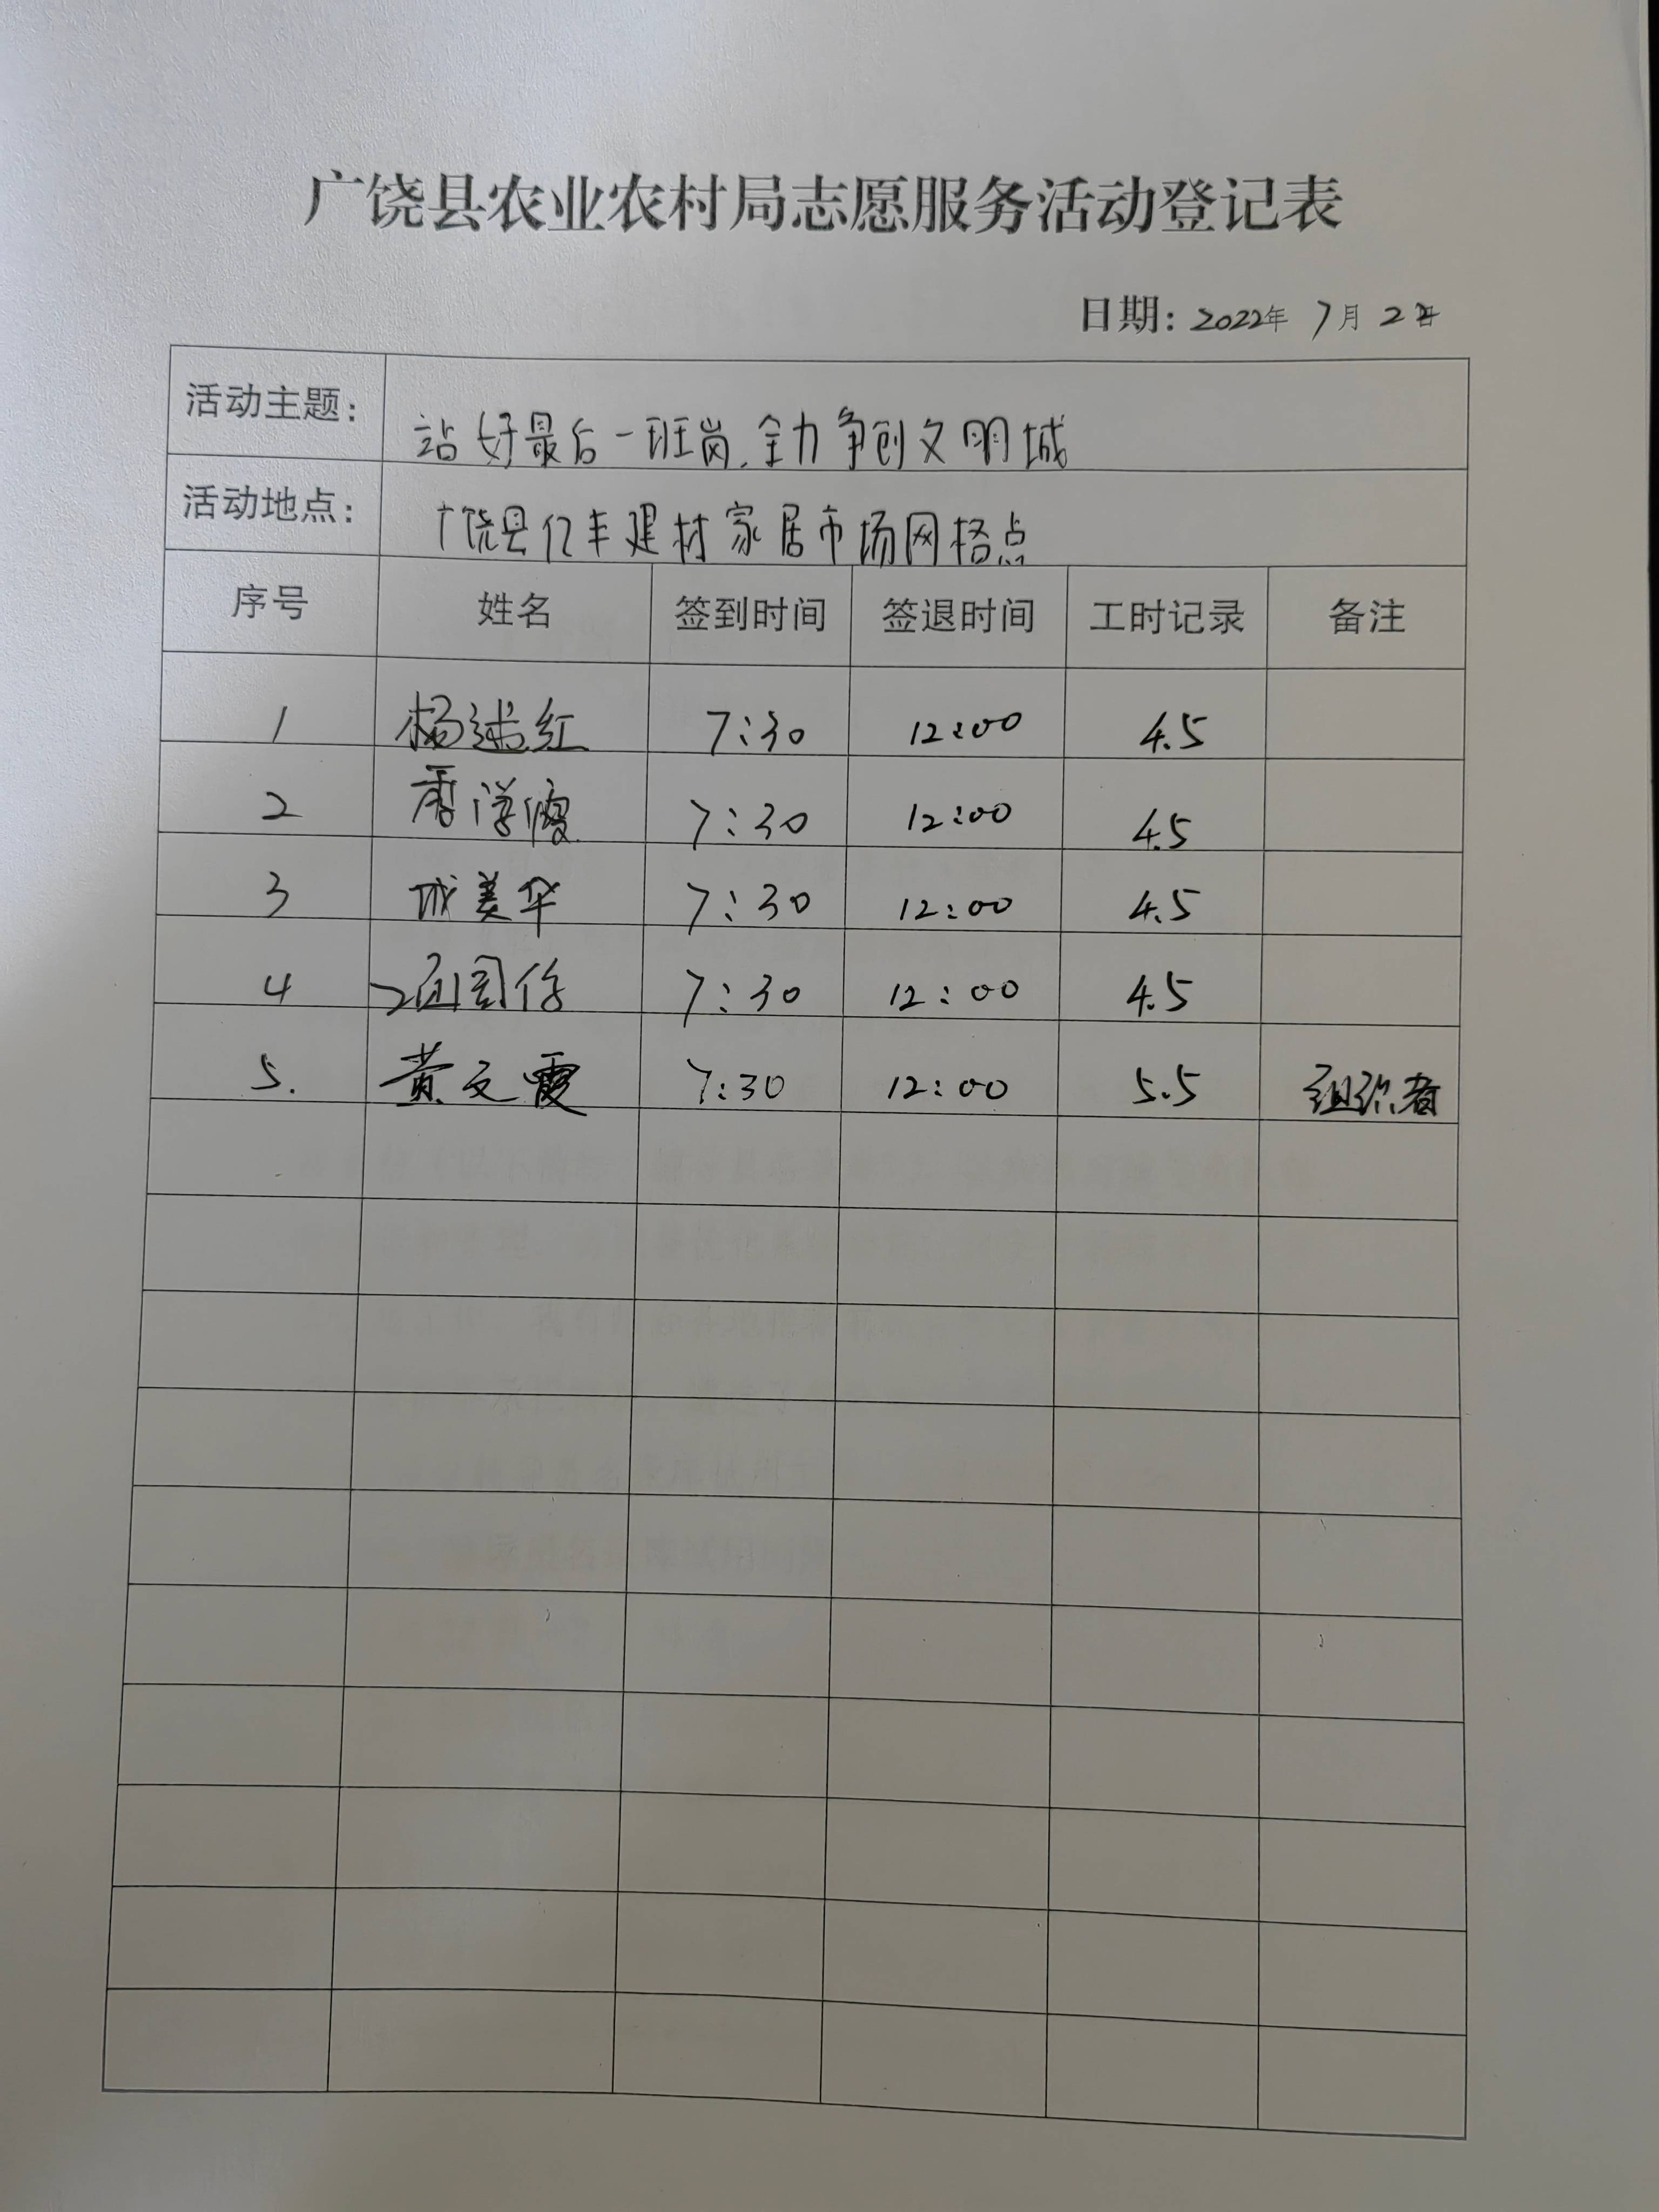 广饶县农业农村局志愿服务活动登记表
日期: 2022年 7月 2 日
活动主题: 站好最后一班岗.全力争创文明城
活动地点: 广饶县亿丰建材家居市场网格点
序号 姓名 签到时间 签退时间 工时记录 备注
1 杨述红 7:30 12:00 4.5
2 7:30 12:00 4.5
3 美华 7:30 12:00 4.5
4 7:30 12:00 4.5
5. 黄文霞 7:30 12:00 5.5 组织者